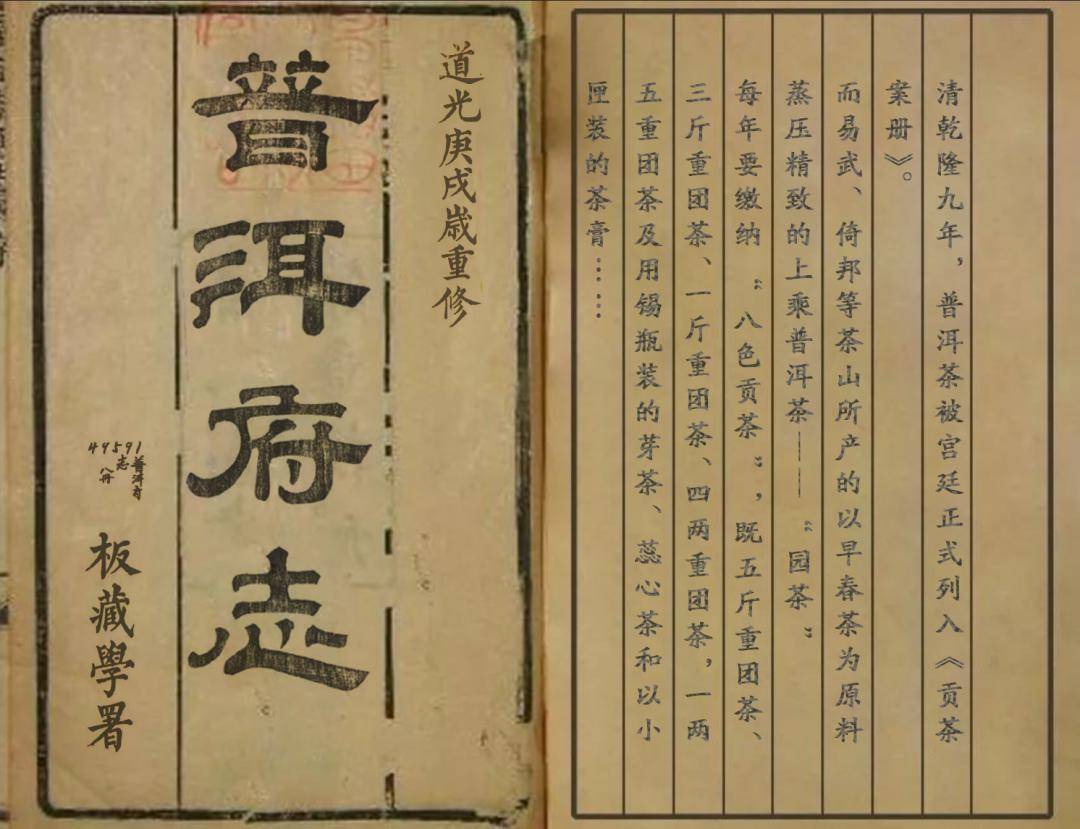 清乾隆九年，普洱茶被宫廷正式列入《贡茶
案册》。
而易武、倚邦等茶山所产的以早春茶为原料
蒸压精致的上乘普洱茶——“园茶”
每年要缴纳“八色贡茶”，既五斤重团茶、
三斤重团茶、一斤重团茶、四两重团茶，一两
五重团茶及用锡瓶装的芽茶、蕊心茶和以小
匣装的茶膏……
道光庚戌歲重修
普洱府志
49591
普洱府
志
八冊
板藏學署